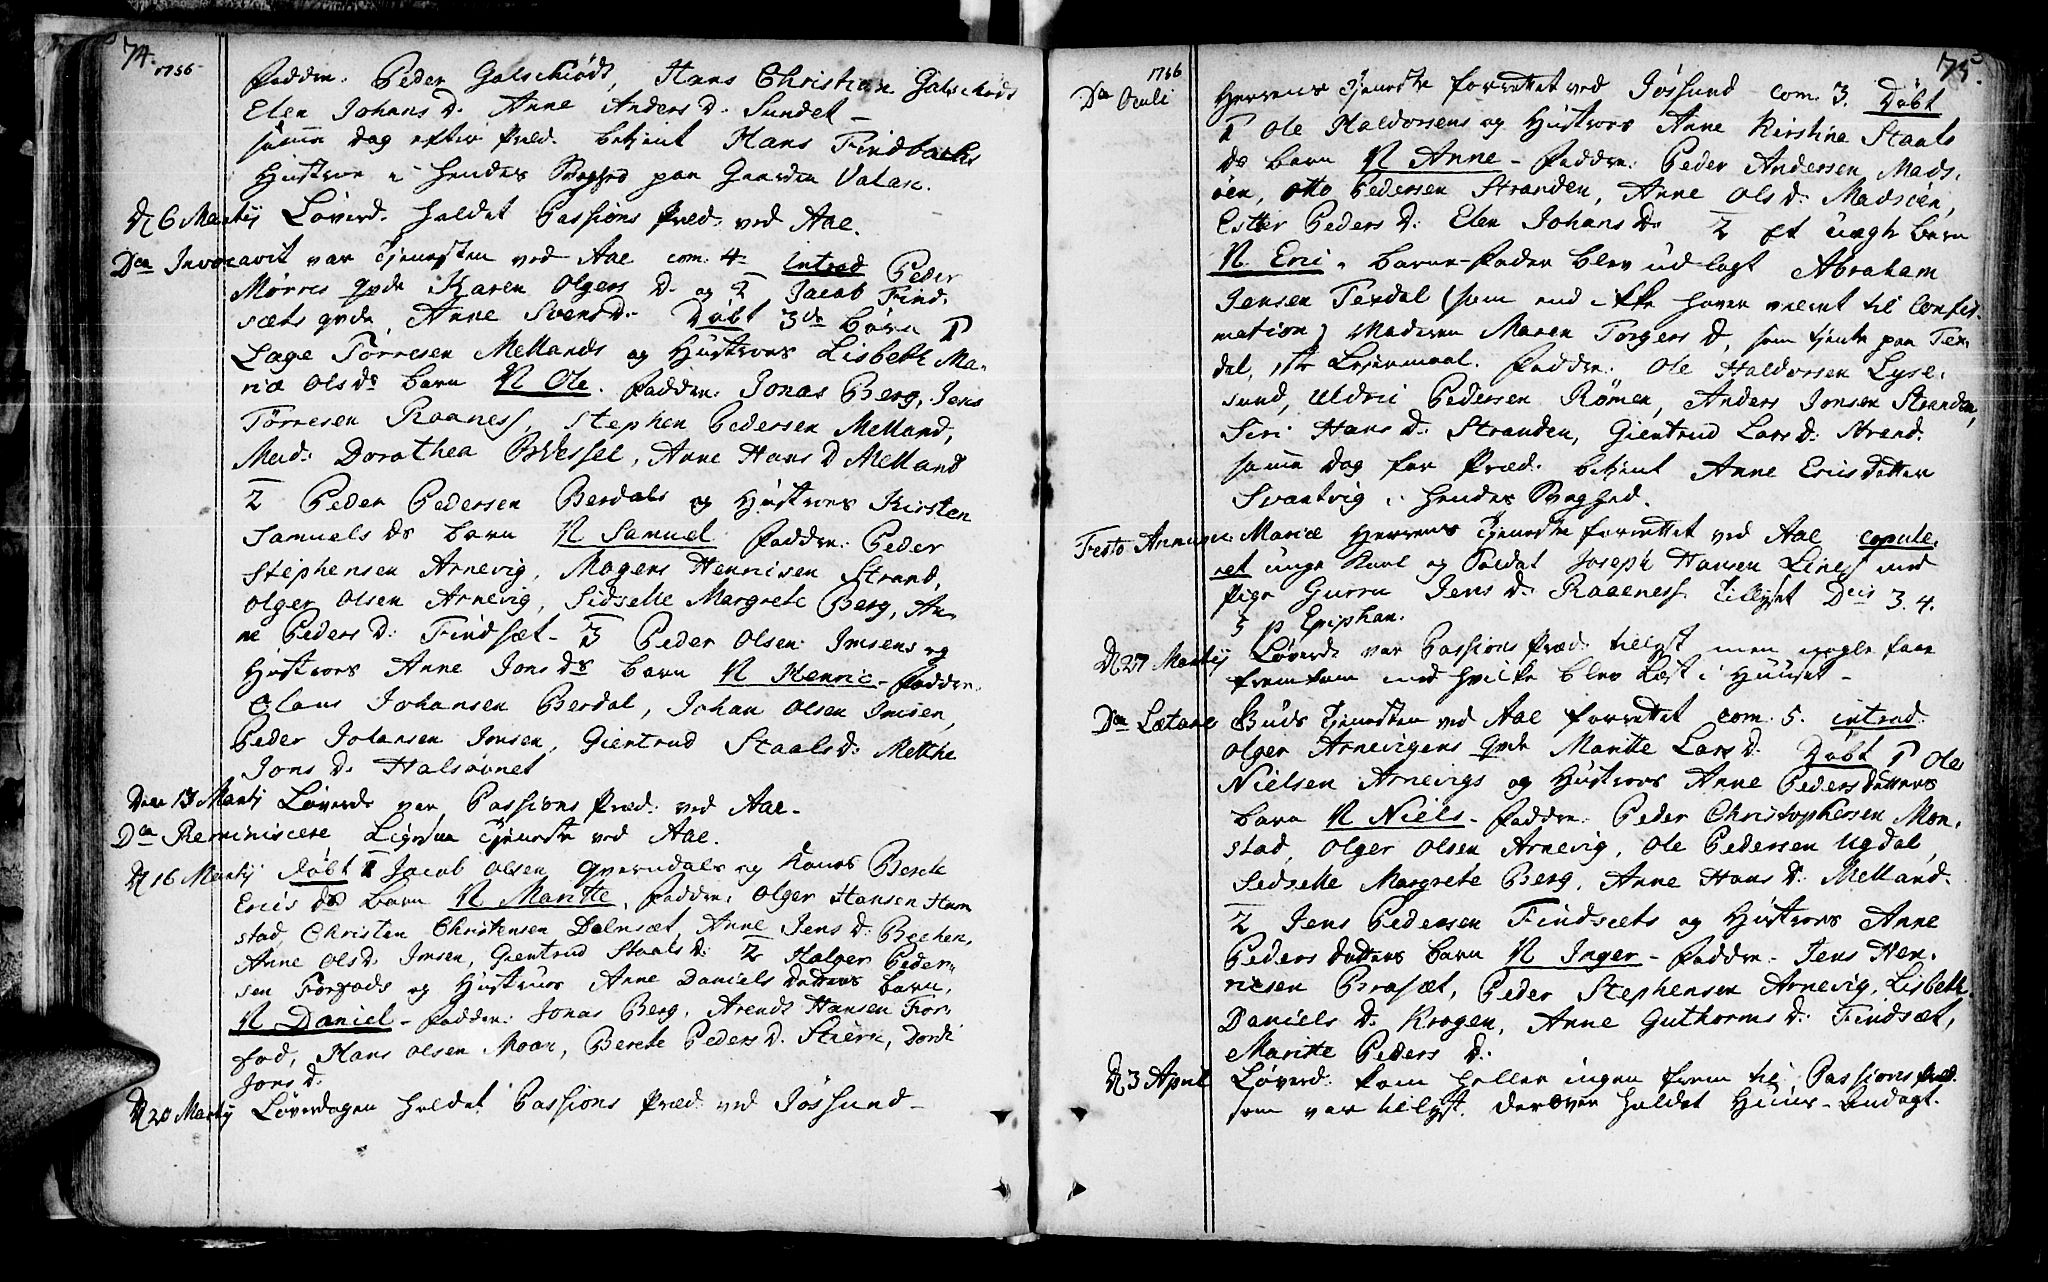 74.
1756
Faddre. Peder Galschiöds, Hans Christian Galschiöds
Elen Johans D. Anne Anders D. Sundet –
samme dag efter Præd. betient Hans Findbachs
Hustroe i hendes Svaghed paa Gaarden Valan.
D 6 Martij Løverd. holdet Passions Præd. ved Aae.
Dca Invocavit var Tjenesten ved Aae com. 4 introd Peder
Mørris qvde Karen Olgers D. og 2 Jacob Find,
sæts qvde Anne Svens D. Døbt 3de børn 1
Lage Tørresen Mellands og Hustroes Lisbeth Ma,
riæ Ols Ds barn N Ole. Faddre: Jonas Berg, Jens
Tørresen Raaness, Stephen Pedersen Melland,
Mad: Dorothea Wessel, Anne Hans D Melland
2 Peder Pedersen Berdals og Hustroes Kirsten
Samuels Ds barn N Samuel Faddre: Peder
Stephensen Arnevig, Mogens Henrisen Strand,
Olger Olsen Arnevig, Sidselle Margrete Berg, An,
ne Peders D: Findsæt – 3 Peder Olsen Imsens og
Hustroes Anne Jons Ds barn N Henric – Faddre.
Claus Johansen Berdal, Johan Olsen Imsen,
Peder Johansen Imsen, Giertrud Staals D: Metthe
Jons D. Halsøvnet
Den 13 Martij Løverd. var Passions Præd: ved Aae –
Dca Reminiscere Ligesaa Tjeneste ved Aae.
D 16 Martij Døbt 1 Jacob Olsen Qverndals og Kones Berete
Erics Ds barn N Maritte, Faddre: Olger Hansen Hum
stad Christen Christensen Dalusæt, Anne Jens D. Bechen,
Anne Ols D. Imsen, Giertrud Staals D: 2 Holger Peder,
sen Forfods og Hustrues Anne Daniels Datters barn,
N Daniel – Faddre: Jonas Berg, Arendt Hansen For,
fod, Hans Olsen Moan, Berete Peders D. Stiern, Dordi
Jons D.
D 20 Martij Løverdagen holdet Passions Præd ved Jössund –
75.
1756
Dca Oculi Herrens Tjeneste forrettet ved Jössund com. 3. Döbt
1 Ole Haldorsens og Hustroes Anne Kirstine Staals
Ds barn N Anne – Faddre: Peder Andersen Mads,
öen, Otto Pedersen Stranden, Anne Ols D. Madsöen,
Ester Peders D. Elen Johans D. 2 Et uægte barn
N. Eric. Barne-Fader blev udlagt Abraham
Jensen Terdal (som end ikke haver været til Confir
mation) Moderen Maren Torgers D, som tjente paa Ter,
dal, 1te Leyermaal. Faddre. Ole Haldorsen Lyse,
sund, Uldric Pedersen Römen, Anders Jonsen Stranden,
Siri Hans D: Stranden, Giertrud Lars D: Strand.
samme Dag før Præd. betient Anne Erics datter
Svartvig i hendes Svaghed.
Festo Annunc: Mariæ Herrens Tjeneste forrettet ved Aae copule,
ret unge Karl og Soldat Joseph Hansen Liness med
Pige Gurru Jens D. Raaeness. Tillyst Dcis 3. 4.
5 p Epiphan.
D 27 Martij Løverd. var Passions Præd: tillyst men nogle faae
fremkom med hvilke blev Læst i Huuset –
Dca Lætare Guds Tjenesten ved Aae forrettet com. 5. introd
Olger Arnevigens qvde Maritte Lars D. Döbt 1 Ole
Nielsen Arnevigs og Hustroes Anne Peders datters
barn N Niels – Faddre: Peder Christophersen Mon,
stad, Olger Olsen Arnevig, Ole Pedersen Ugdal,
Sidselle Margrete Berg, Anne Hans D: Melland.
2 Jens Pedersen Findsæts og Hustroes Anne
Peders datters barn N Inger – Faddre – Jens Hen,
ricsen Brasæt, Peder Stephensen Arnevig, Lisbeth
Daniels D. Krogen, Anne Guthorms D: Findsæt,
Maritte Peders D.
D 3 April Løverd. kom heller ingen frem til Passions Præd.
som var tillyst. derover holdet Huus-Andagt.